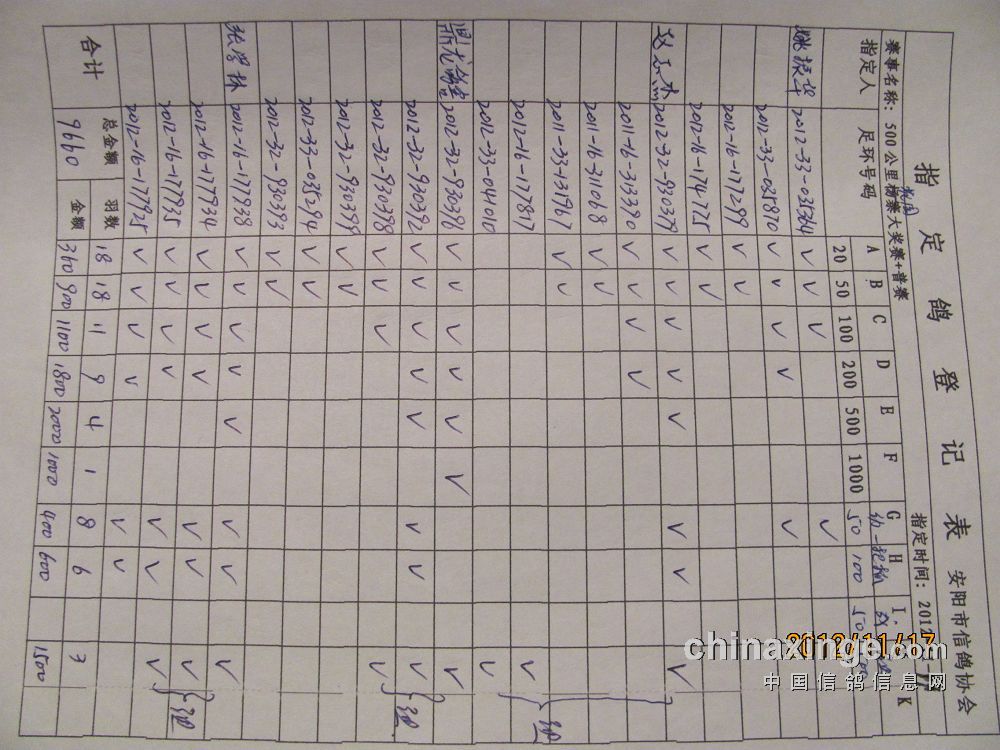 指定鸽登记表 安阳市信鸽协会
赛事名称：500公里 大奖赛+普赛 指定时间：2012
指定人 足环号码 A B C D E F G H I K
20 50 100 200 500 1000 50 100 50
2012-33-
2012-33-035870 √ √ √ √ √
2012-16-177299 √ √
2012-16-174725 √ √
2012-32-930379 √ √ √ √ √ √ √ √
2011-16-313390 √ √ √ √
2011-16-311068 √ √
2011-33-131961 √ √
2012-16-177817 √
2012-33-044010 √
2012-32-930396 √ √ √ √ √ √ √
2012-32-930392 √ √ √ √ √ √ √
2012-32-930398 √ √ √ √
2012-32-930399 √ √
2012-33-035294 √ √
2012-32-930393 √ √
2012-16-177938 √ √ √ √ √ √ √ √
2012-16-177934 √ √ √ √ √ √ √
2012-16-177935 √ √ √ √ √ √ √
2012-16-177925 √ √ √ √ √ √
合计 总金额 羽数 18 18 11 9 4 1 8 6
9660 金额 360 900 1100 1800 2000 1000 400 600 1500
2012/11/17
chinaxinge.com
中国信鸽信息网